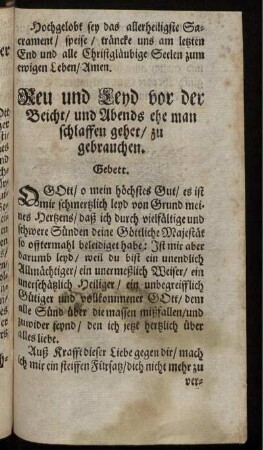 Hochgelobt sey das allerheiligste Sa-
crament/ speise/ träncke uns am letzten
End und alle Christglaubige Seelen zum
ewigen Leben/ Amen.
Reu und Leyd vor der
Beicht/ und Abends ehe man
schlaffen gehet/ zu
gebrauchen.
Gebett.
O GOtt/ o mein höchstes Gut/ es ist
mir schmertzlich leyd von Grund mei-
nes Hertzens/ daß ich durch vielfältige und
schwere Sünden deine Göttliche Majestät
so offtermahl beleidiget habe: Ist mir aber
darumb leyd/ weil du bist ein unendlich
Allmächtiger/ ein unermeßlich Weiser/ ein
unerschätzlich Heiliger/ ein unbegreifflich
Gütiger und vollkommener GOtt/ dem
alle Sünd über die massen mißfallen/ und
zuwider seynd/ den ich jetzt hertzlich über
alles liebe.
Auß Krafft dieser Liebe gegen dir/ mach
ich mir ein steiffen Fürsatz/ dich nicht mehr zu
ver-